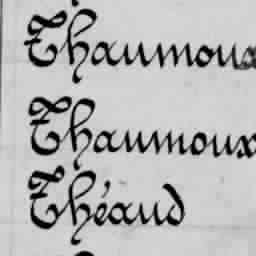 Thaumoux
Thaumoux
Théaud